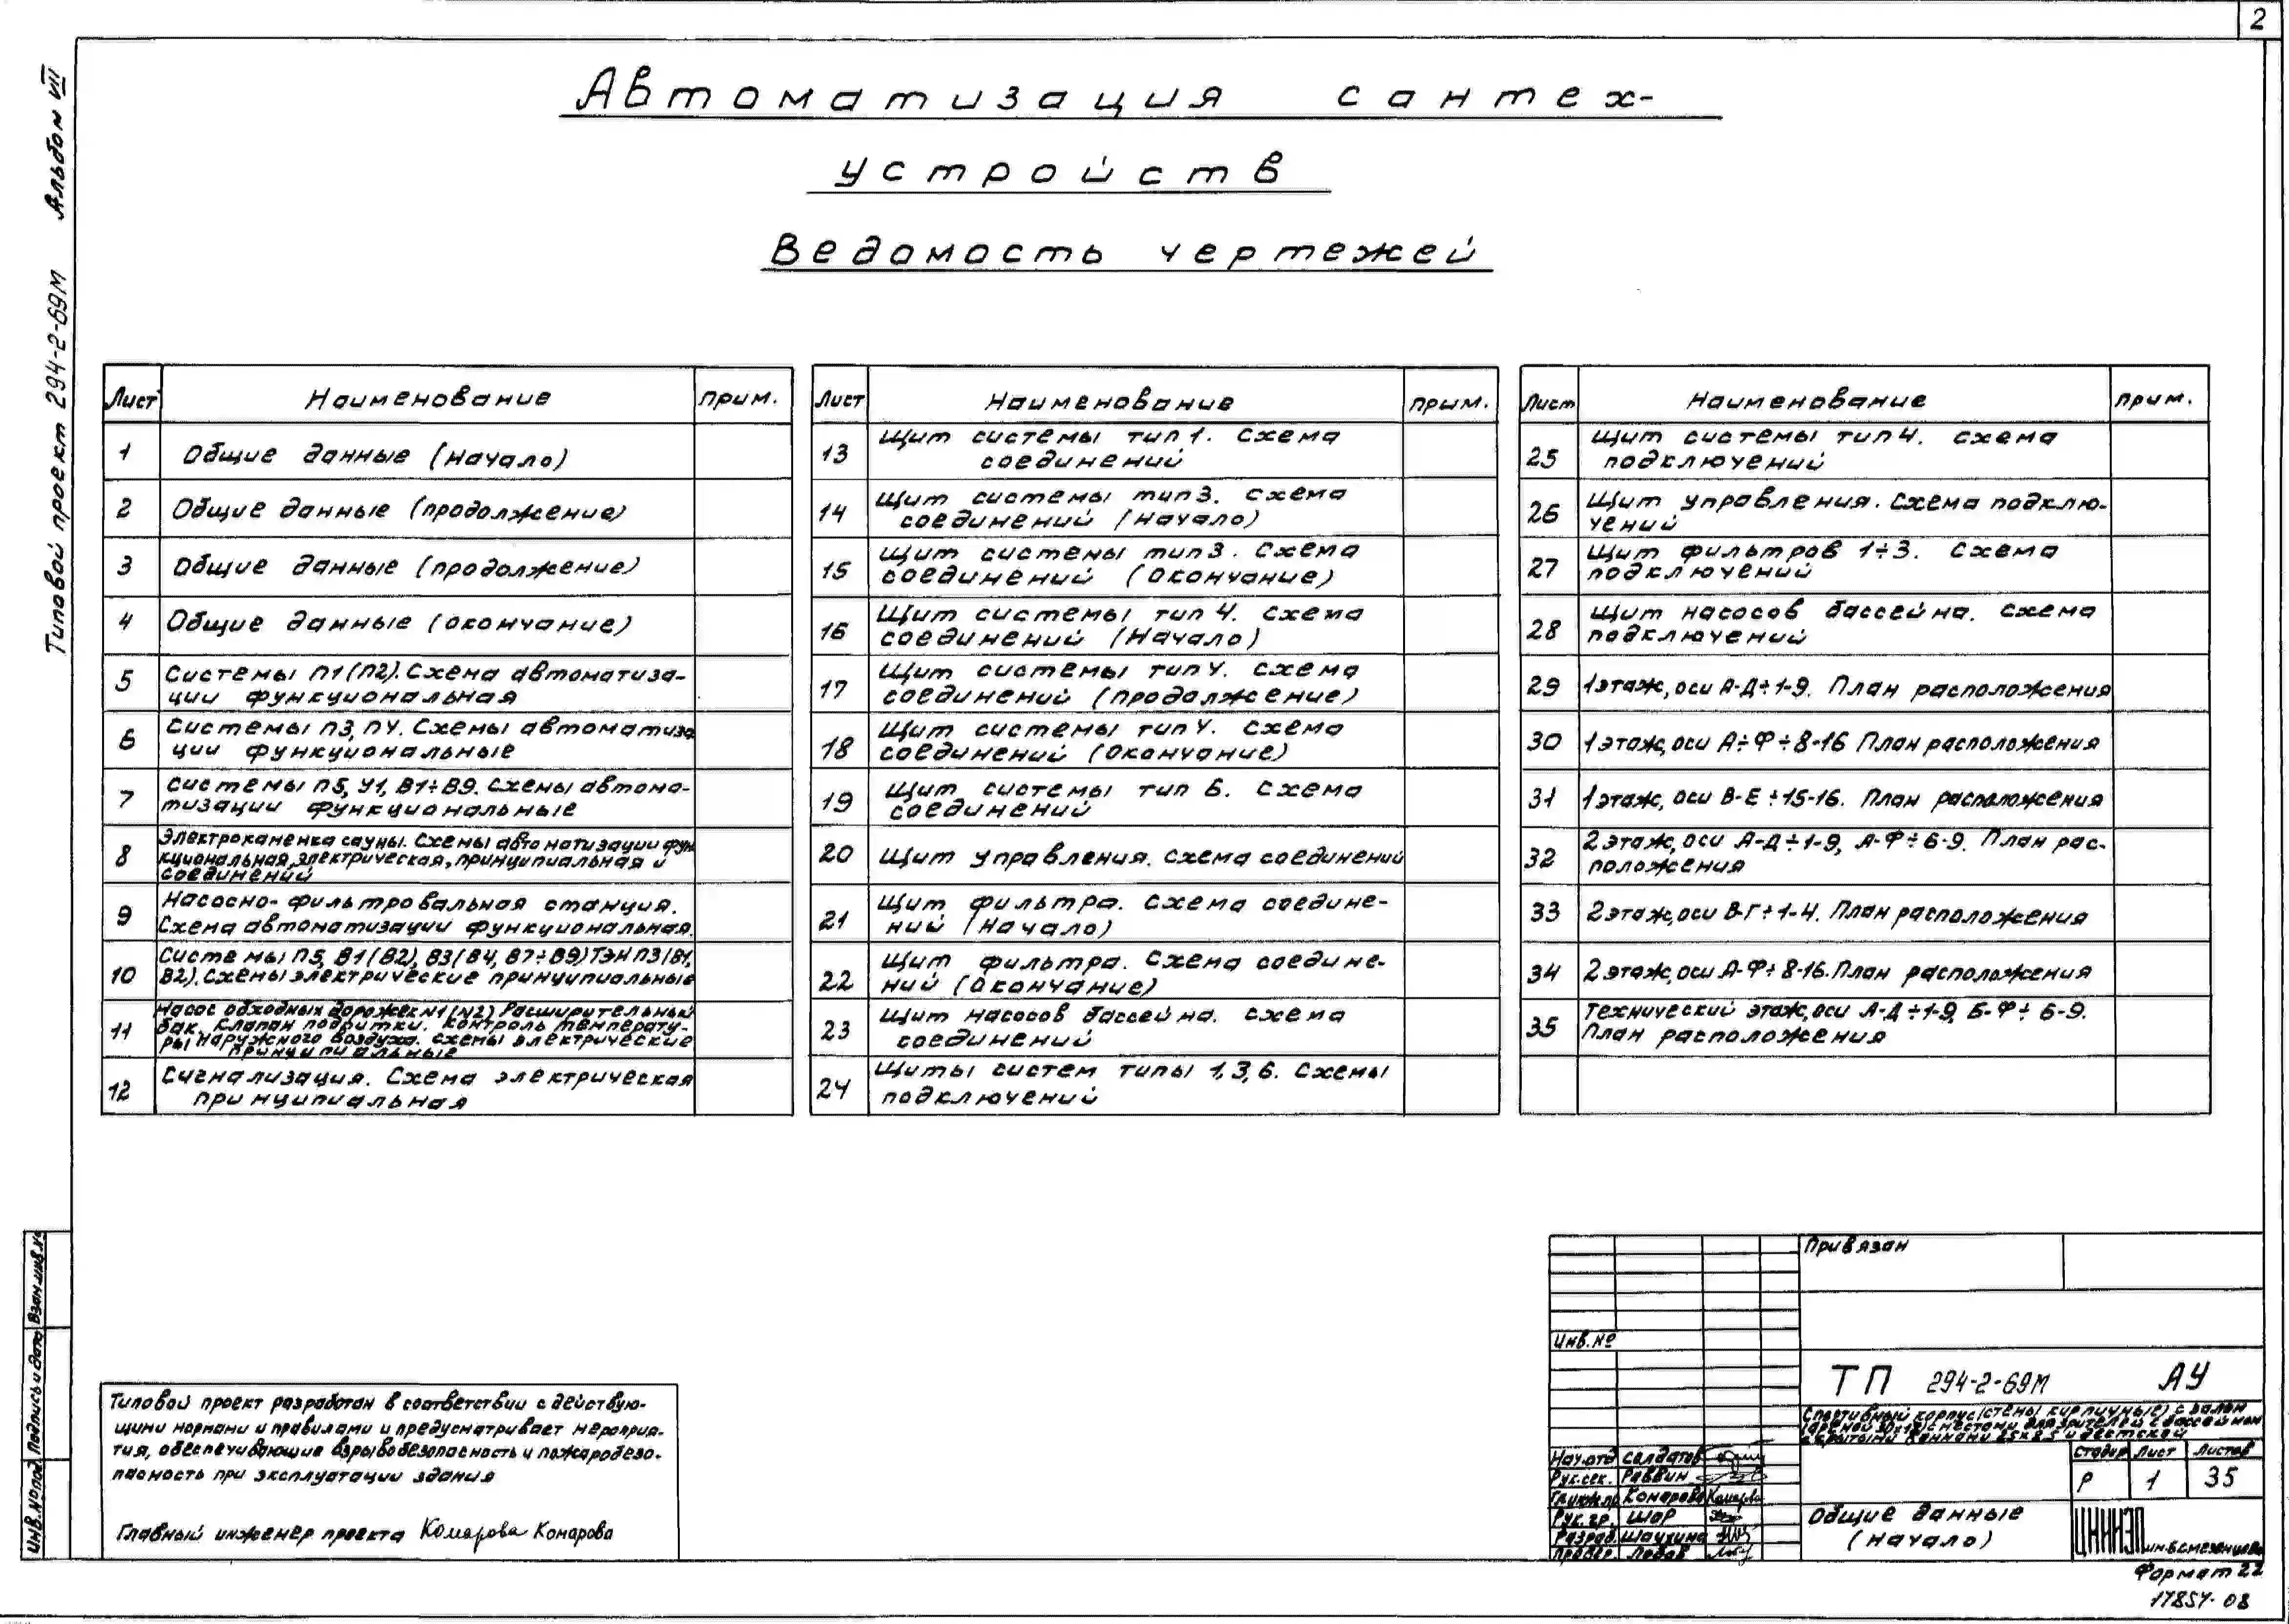 2
Альбом VII
Типовой проект 294-2-69М
Автоматизация сантех-
устройств
Ведомость чертежей
Лист Наименование прим.
1 Общие данные (начало)
2 Общие данные (продолжение)
3 Общие данные (продолжение)
4 Общие данные (окончание)
5 Системы П1(П2). Схема автоматиза-
ции функциональная
6 Системы П3, П4. Схемы автоматиза
ции функциональные
7 Системы П5, У1, В1÷В9. Схемы автома-
тизации функциональные
8 Электрокаменка сауны. Схемы автоматизации фун
кциональная, электрическая, принципиальная и
соединений
9 Насосно-фильтровальная станция.
Схема автоматизации функциональная.
10 Системы П5, В1(В2), В3(В4, В7÷В9) ТЭН П3(В1,
В2). Схемы электрические принципиальные
11 Насос обходных дорожек N1(N2) Расширительный
бак. Клапан подпитки. Контроль температу-
ры наружного воздуха. Схемы электрические
принципиальные
12 Сигнализация. Схема электрическая
принципиальная
Лист Наименование прим.
13 Щит системы тип 1. Схема
соединений
14 Щит системы тип 3. Схема
соединений (Начало)
15 Щит системы тип 3. Схема
соединений (Окончание)
16 Щит системы тип 4. Схема
соединений (Начало)
17 Щит системы тип 4. Схема
соединений (продолжение)
18 Щит системы тип 4. Схема
соединений (Окончание)
19 Щит системы тип 6. Схема
соединений
20 Щит управления. Схема соединений
21 Щит фильтра. Схема соедине-
ний (Начало)
22 Щит фильтра. Схема соедине-
ний (Окончание)
23 Щит насосов бассейна. Схема
соединений
24 Щиты систем типы 1, 3, 6. Схемы
подключений
Лист Наименование прим.
25 Щит системы тип 4. Схема
подключений
26 Щит управления. Схема подклю-
чений
27 Щит фильтров 1÷3. Схема
подключений
28 Щит насосов бассейна. Схема
подключений
29 1 этаж, оси А-Д÷1-9. План расположения
30 1 этаж, оси А÷Ф÷8-16 План расположения
31 1 этаж, оси В-Е÷15-16. План расположения
32 2 этаж, оси А-Д÷1-9, А-Ф÷6-9. План рас-
положения
33 2 этаж, оси В-Г÷1-4. План расположения
34 2 этаж, оси А-Ф÷8-16. План расположения
35 Технический этаж, оси А-Д÷1-9, Б-Ф÷6-9.
План расположения
Типовой проект разработан в соответствии с действую-
щими нормами и правилами и предусматривает мероприя-
тия, обеспечивающие взрывобезопасность и пожаробезо-
пасность при эксплуатации здания
Главный инженер проекта Комарова Комарова
Взам.инв.№
Подпись и дата
Инв.№ подл.
Привязан
Инв.№
ТП 294-2-69М АУ
Спортивный корпус (стены кирпичные) с залом
(ареной 30×18) с местами для зрителей с бассейном
скрытыми ваннами 25×8.5 и детской
Стадия Лист Листов
Р 1 35
Нач.отд Солдатов
Рук.сек. Раввин
Гл.инж.пр Комарова Комарова
Рук.гр. Шор
Разраб. Шаухина
Провер. Лобов
Общие данные
(начало)
ЦНИИЭП им. Б.С. Мезенцева
Формат 22
17854-08